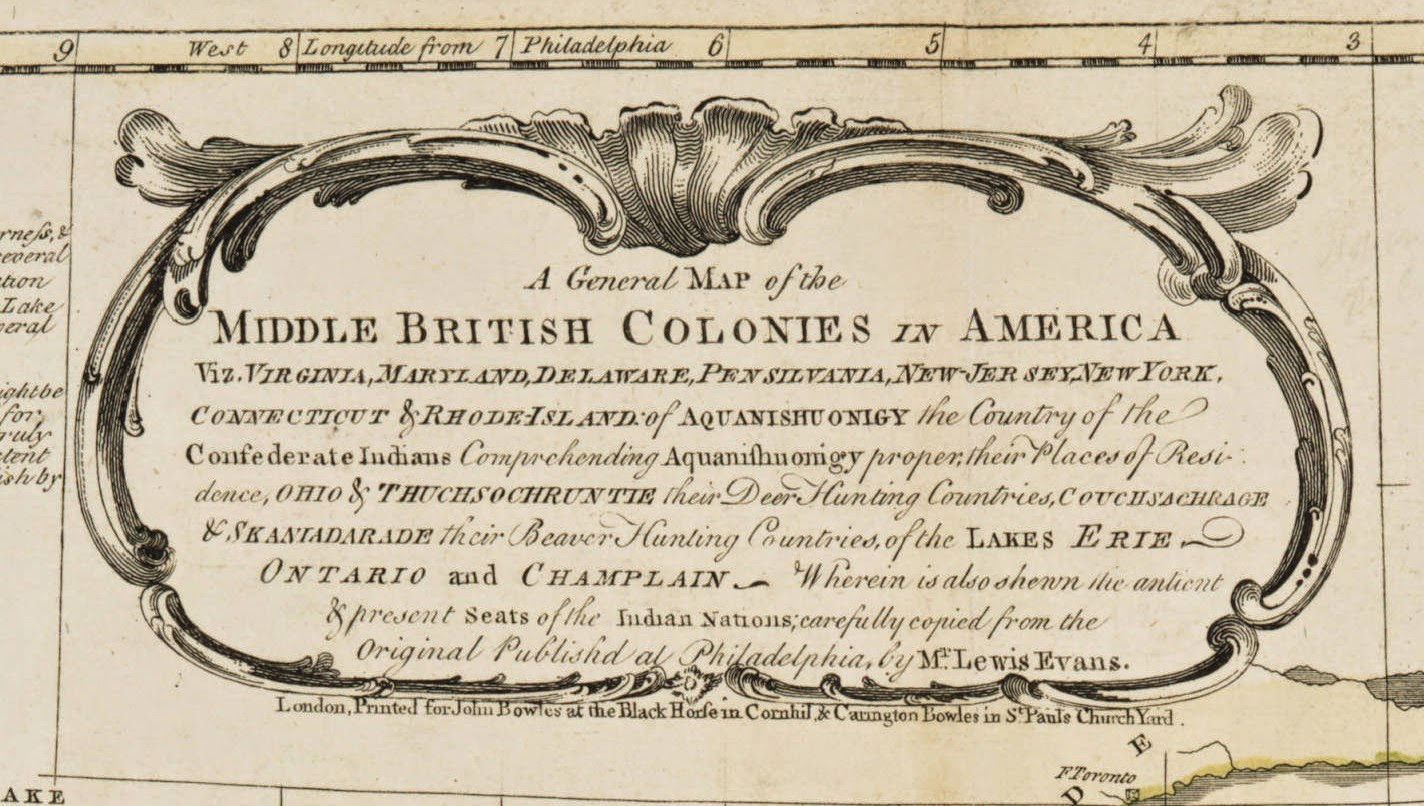 9 West 8 Longitude from 7 Philadelphia 6 5 4 3
rneſs, &
several
ation
Lake
veral
ight be
for
ruly
tent
ish by
A General MAP of the
MIDDLE BRITISH COLONIES IN AMERICA
Viz. VIRGINIA, MARYLAND, DELAWARE, PENSILVANIA, NEW-JERSEY, NEW YORK,
CONNECTICUT & RHODE-ISLAND: of AQUANISHUONIGY the Country of the
Confederate Indians Comprehending Aquaniſhuonigy proper, their Places of Resi-
dence, OHIO & THUCHSOCHRUNTIE their Deer Hunting Countries, COUCHSACHRAGE
& SKANIADARADE their Beaver Hunting Countries, of the LAKES ERIE
ONTARIO and CHAMPLAIN. Wherein is also shewn the antient
& present Seats of the Indian Nations; carefully copied from the
Original Publish'd at Philadelphia, by Mr. Lewis Evans.
London, Printed for John Bowles at the Black Horſe in Cornhil, & Carington Bowles in St. Pauls Church Yard.
E
F. Toronto
D
AKE